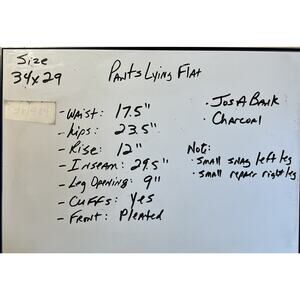 Size
34x29
Pants Lying Flat
- Waist: 17.5"
- Hips: 23.5"
- Rise: 12"
- Inseam: 29.5"
- Leg Opening: 9"
- Cuffs: Yes
- Front: Pleated
• Jos A Bank
• Charcoal
Not:
• small snag left leg
• small repair right leg